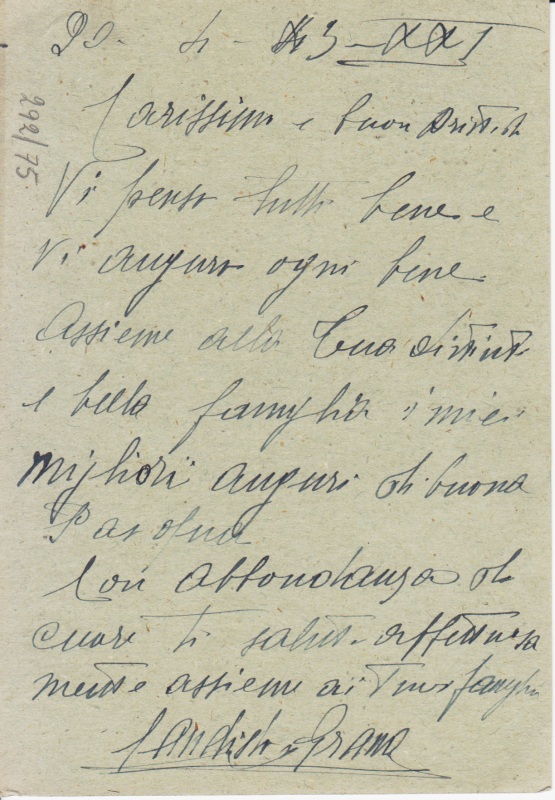 20 - 4 - 43 - XXI
Carissimo e buon
292/75
Vi penso tutti bene e
Vi auguro ogni bene
Assieme alla tua distinta
e bella famiglia i miei
migliori auguri di buona
Pasqua
Con abbondanza di
cuore ti saluto affettuosa
mente assieme ai tuoi famigli